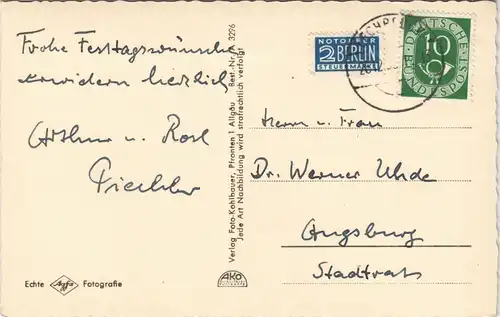 Frohe Festtagswünsche
erwidern herzlich
Arthur u. Rosl
Echte Agfa Fotografie
Verlag Foto-Kohlbauer, Pfronten 1. Allgäu Best.-Nr. 3296
Jede Art Nachbildung wird strafrechtlich verfolgt
AKO
NOTOPFER
2 BERLIN
STEUERMARKE
DEUTSCHE
BUNDESPOST
10
Herrn u. Frau
Dr. Werner Uhde
Augsburg
Stadtrat